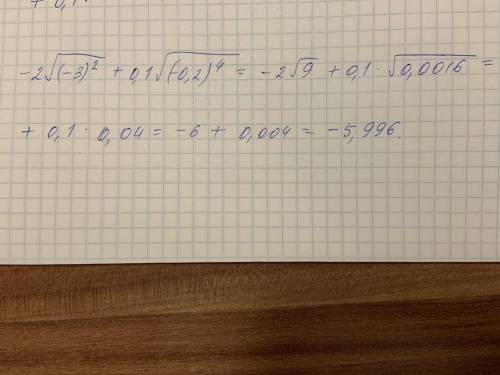 + 0,1
-2√(-3)² + 0,1√(-0,2)⁴ = -2√9 + 0,1 · √0,0016 =
+ 0,1 · 0,04 = -6 + 0,004 = -5,996.